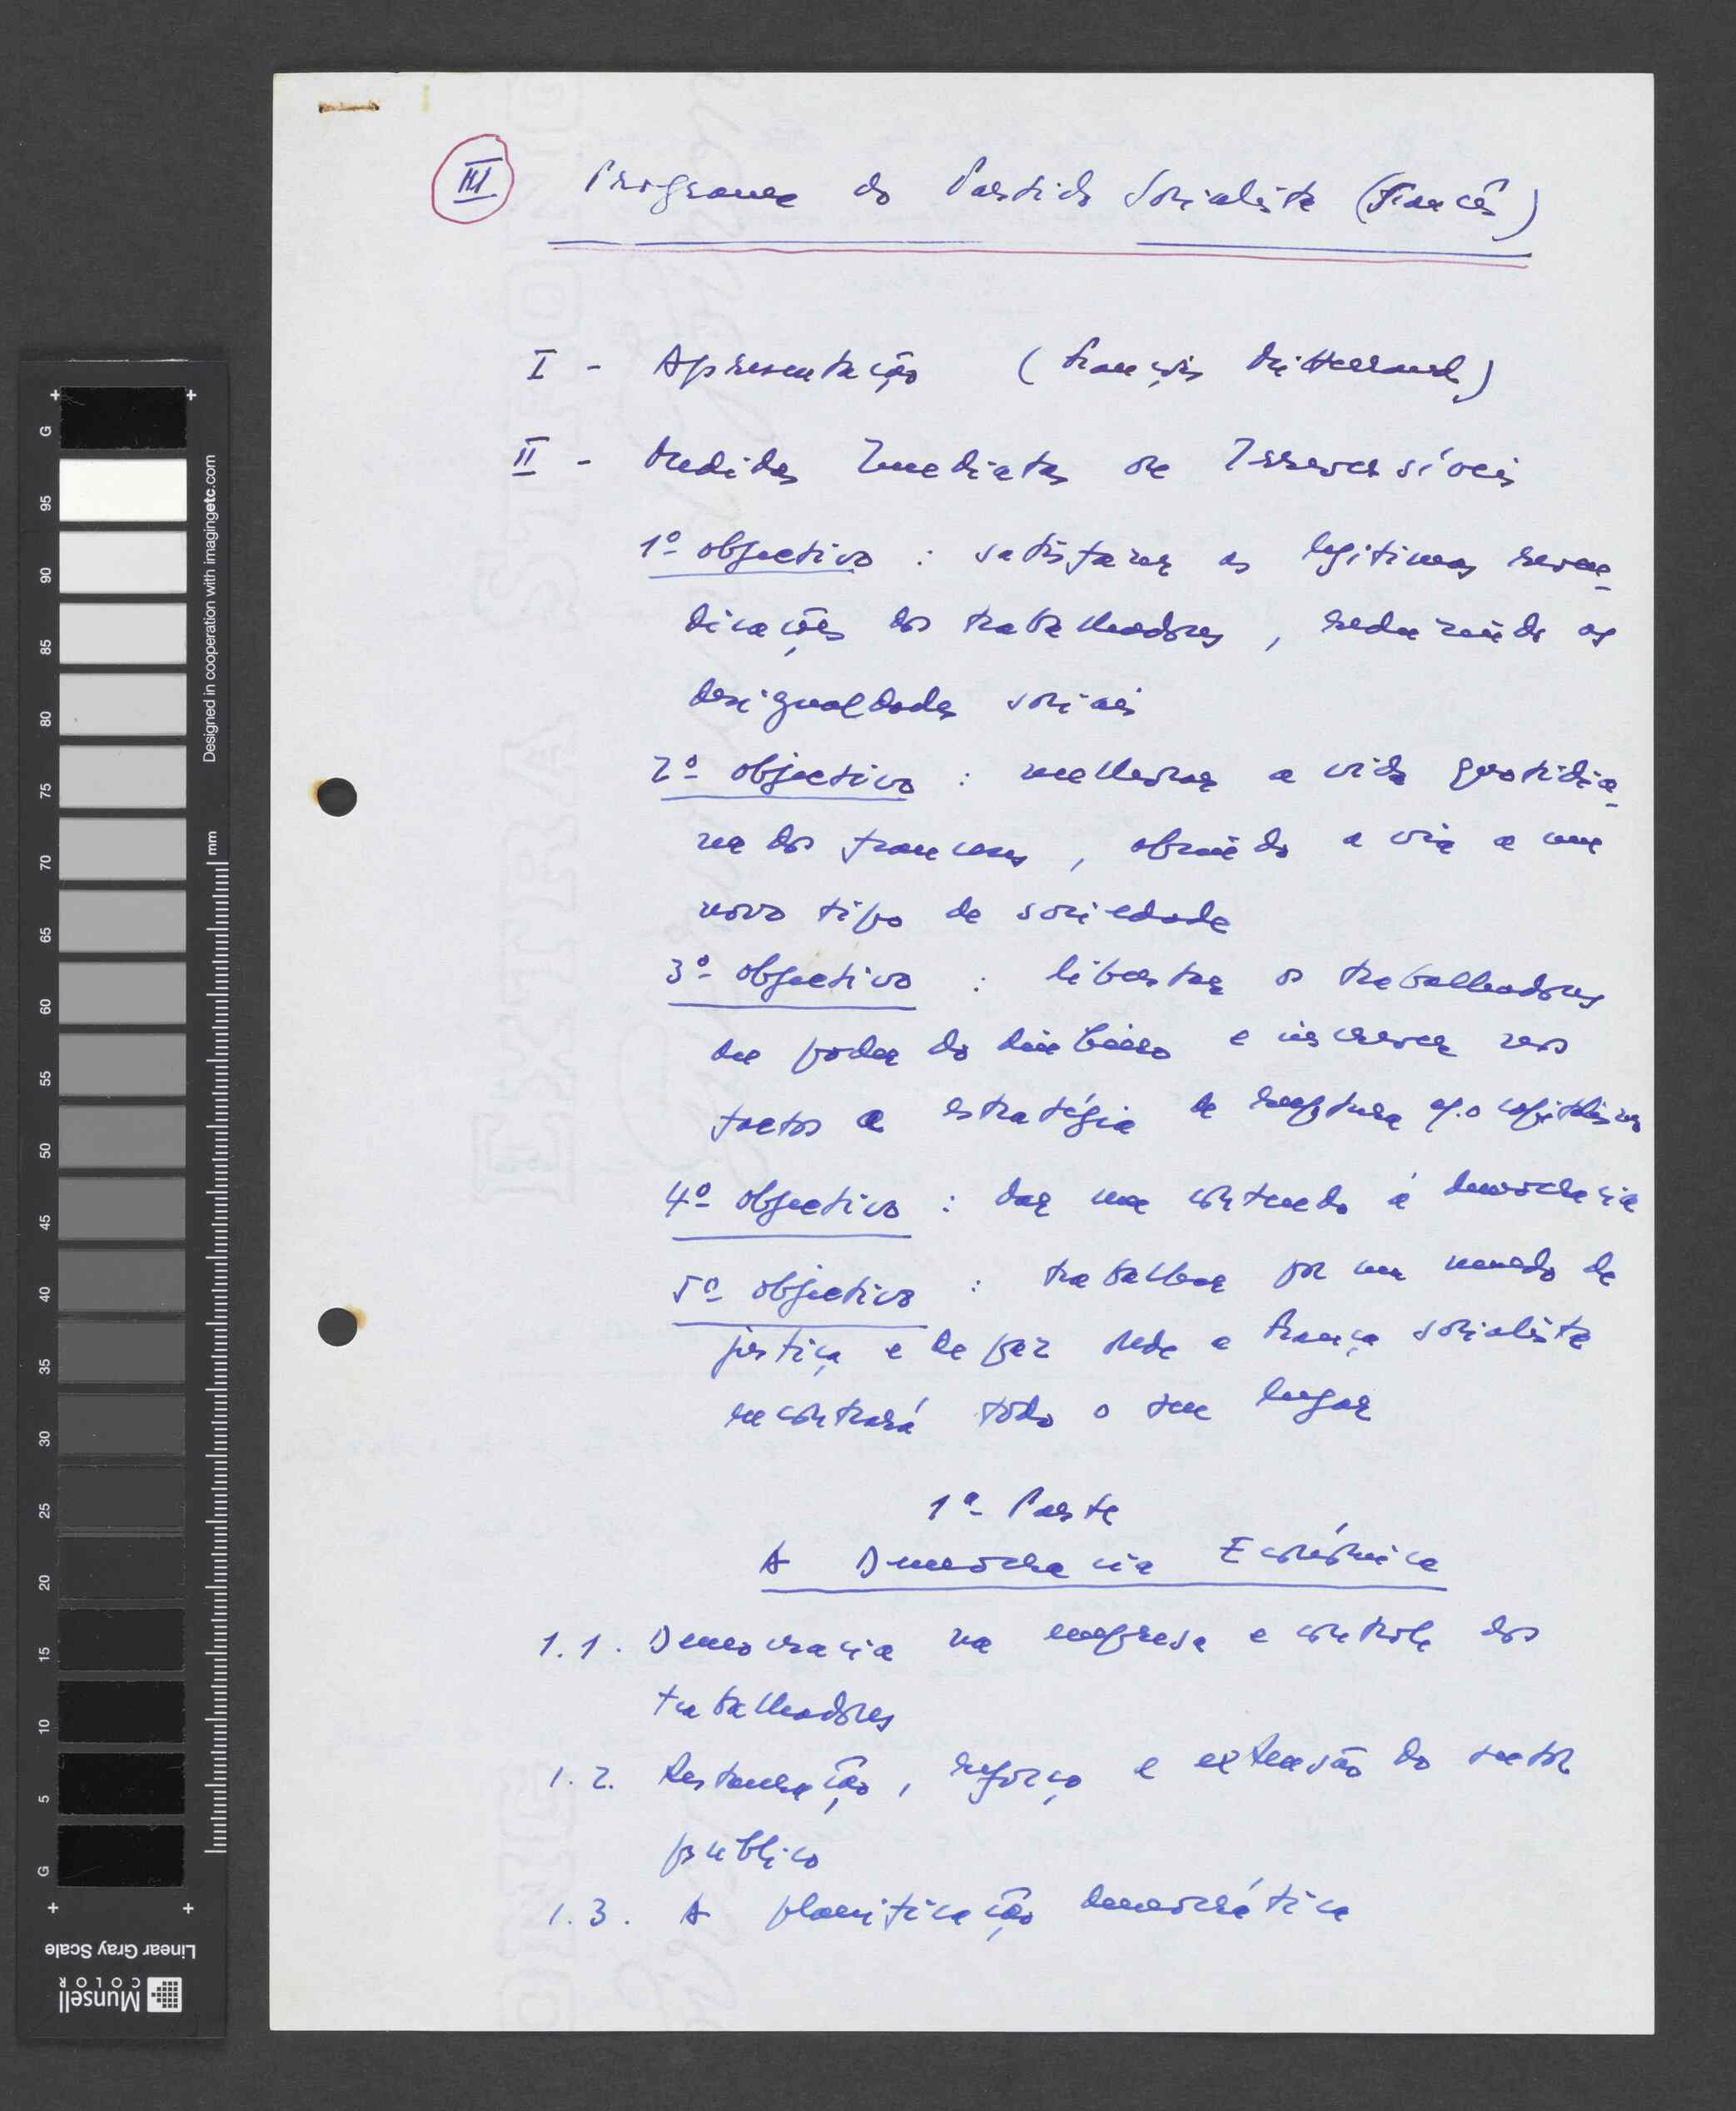 III Programa do Partido Socialista (Francês)
I - Apresentação (François Mitterrand)
II - Medidas Imediatas e Irreversíveis
1º objectivo : satisfazer as legítimas reven-
dicações dos trabalhadores, reduzindo as
desigualdades sociais
2º objectivo : melhorar a vida quotidia-
na dos franceses, abrindo a via a um
novo tipo de sociedade
3º objectivo : libertar os trabalhadores
do poder do dinheiro e inscrever nos
factos a estratégia de ruptura c/ o capitalismo
4º objectivo : dar um conteúdo à democracia
5º objectivo : trabalhar por um mundo de
justiça e de paz onde a França socialista
encontrará todo o seu lugar
1ª Parte
A Democracia Económica
1.1. Democracia na empresa e controle dos
trabalhadores
1.2. Restauração, reforço e extensão do sector
público
1.3. A planificação democrática
G 95 90 85 80 75 70 65 60 55 50 45 40 35 30 25 20 15 10 5 G
mm
Designed in cooperation with imagingetc.com
Linear Gray Scale
Munsell
COLOR